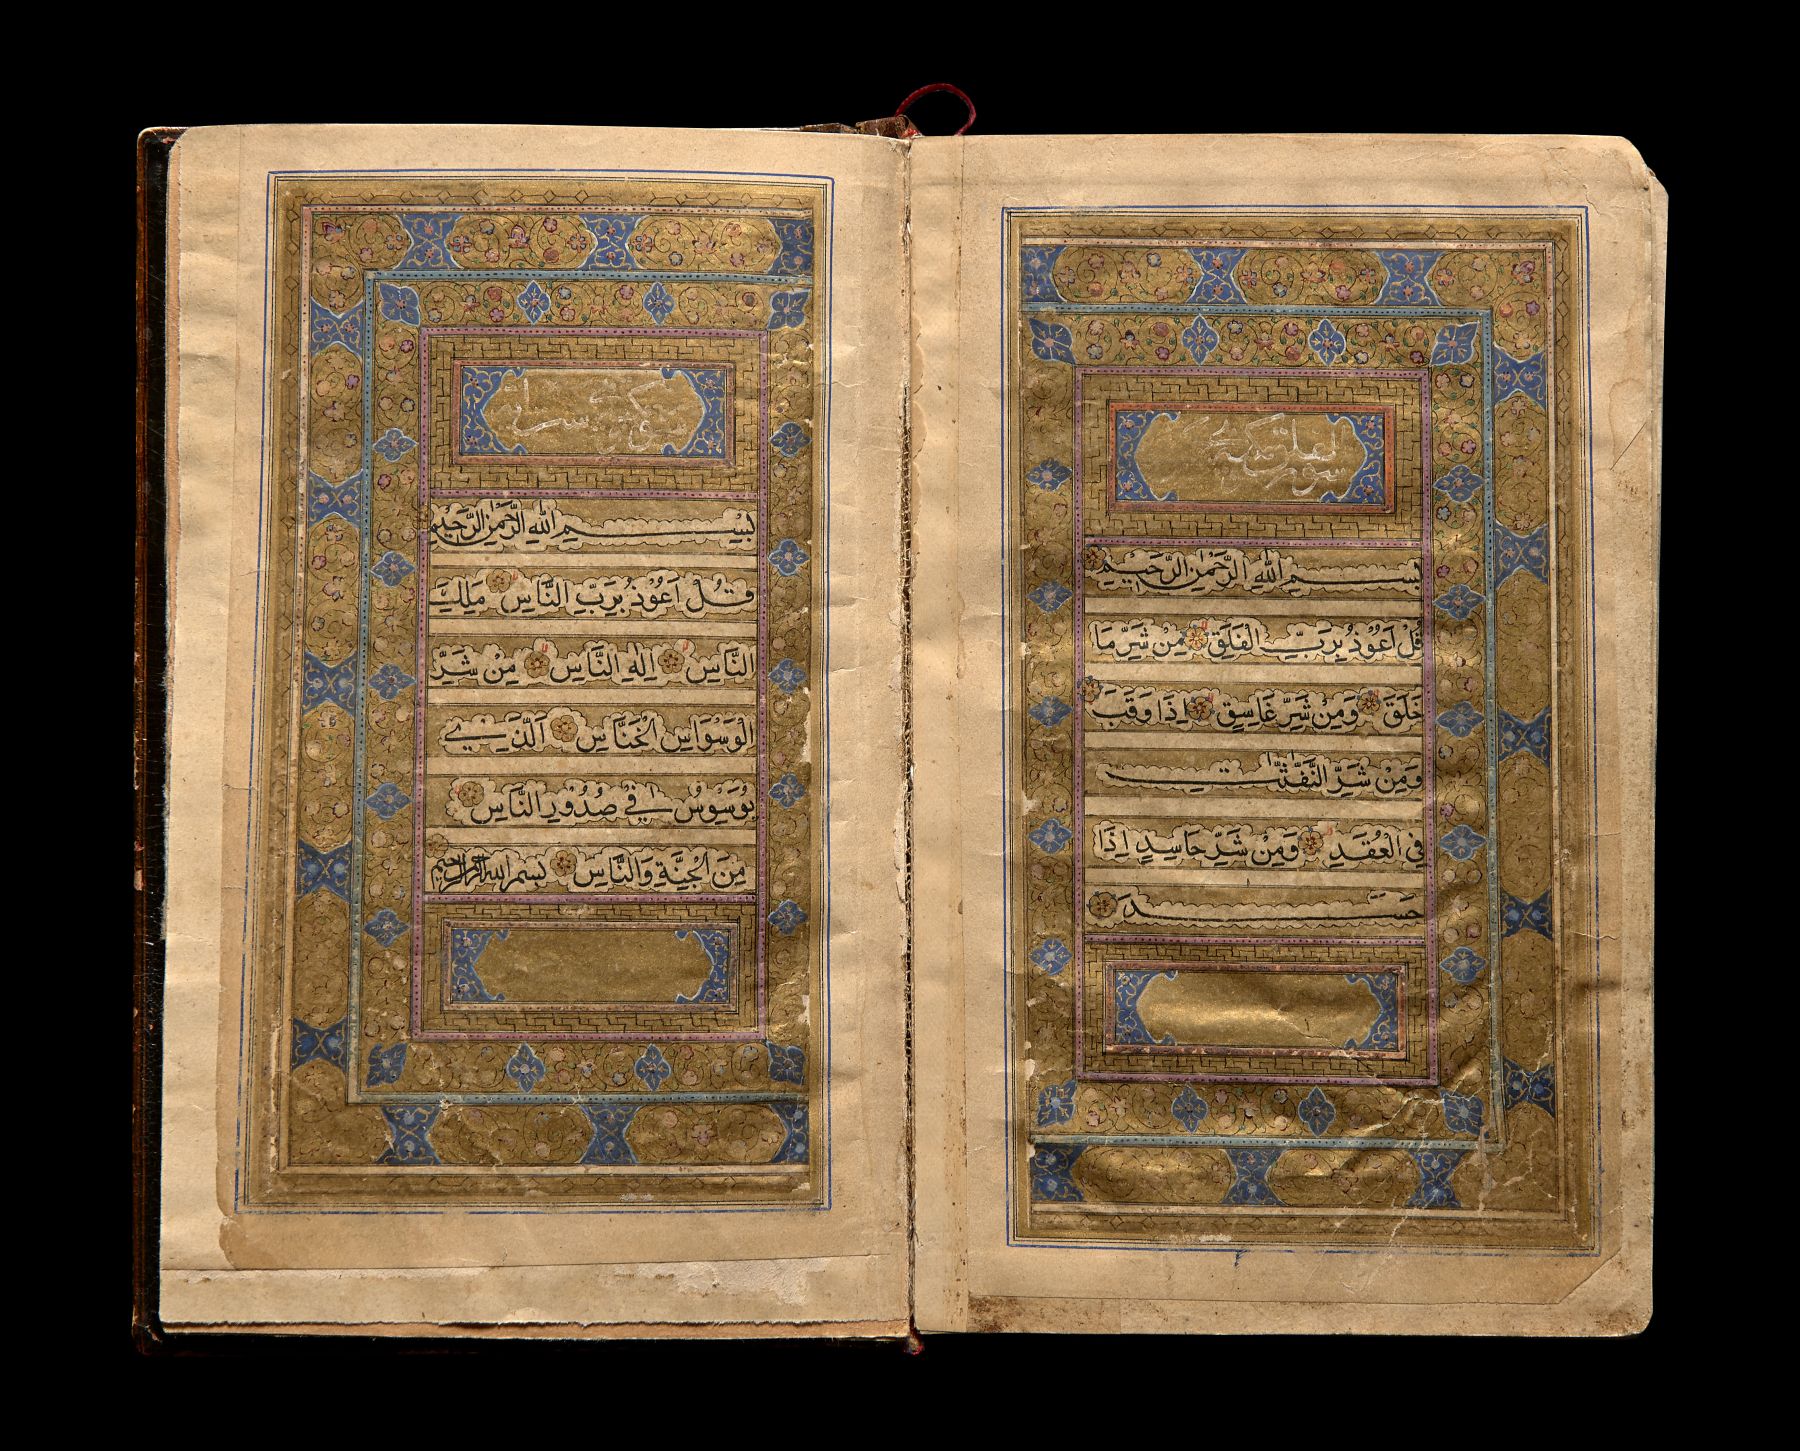 سورة الفلق مكية
بِسْمِ اللهِ الرَّحْمٰنِ الرَّحِيْمِ
قُلْ اَعُوْذُ بِرَبِّ الْفَلَقِ مِنْ شَرِّ مَا
خَلَقَ وَمِنْ شَرِّ غَاسِقٍ اِذَا وَقَبَ
وَمِنْ شَرِّ النَّفّٰثٰتِ
فِى الْعُقَدِ وَمِنْ شَرِّ حَاسِدٍ اِذَا
حَسَدَ
بِسْمِ اللهِ الرَّحْمٰنِ الرَّحِيْمِ
قُلْ اَعُوْذُ بِرَبِّ النَّاسِ مَلِكِ
النَّاسِ اِلٰهِ النَّاسِ مِنْ شَرِّ
الْوَسْوَاسِ الْخَنَّاسِ اَلَّذِيْ
يُوَسْوِسُ فِيْ صُدُوْرِ النَّاسِ
مِنَ الْجِنَّةِ وَالنَّاسِ بسم الله الرحمن الرحيم